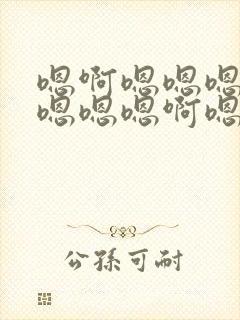 嗯啊嗯嗯嗯
嗯嗯嗯啊嗯
公孫可耐